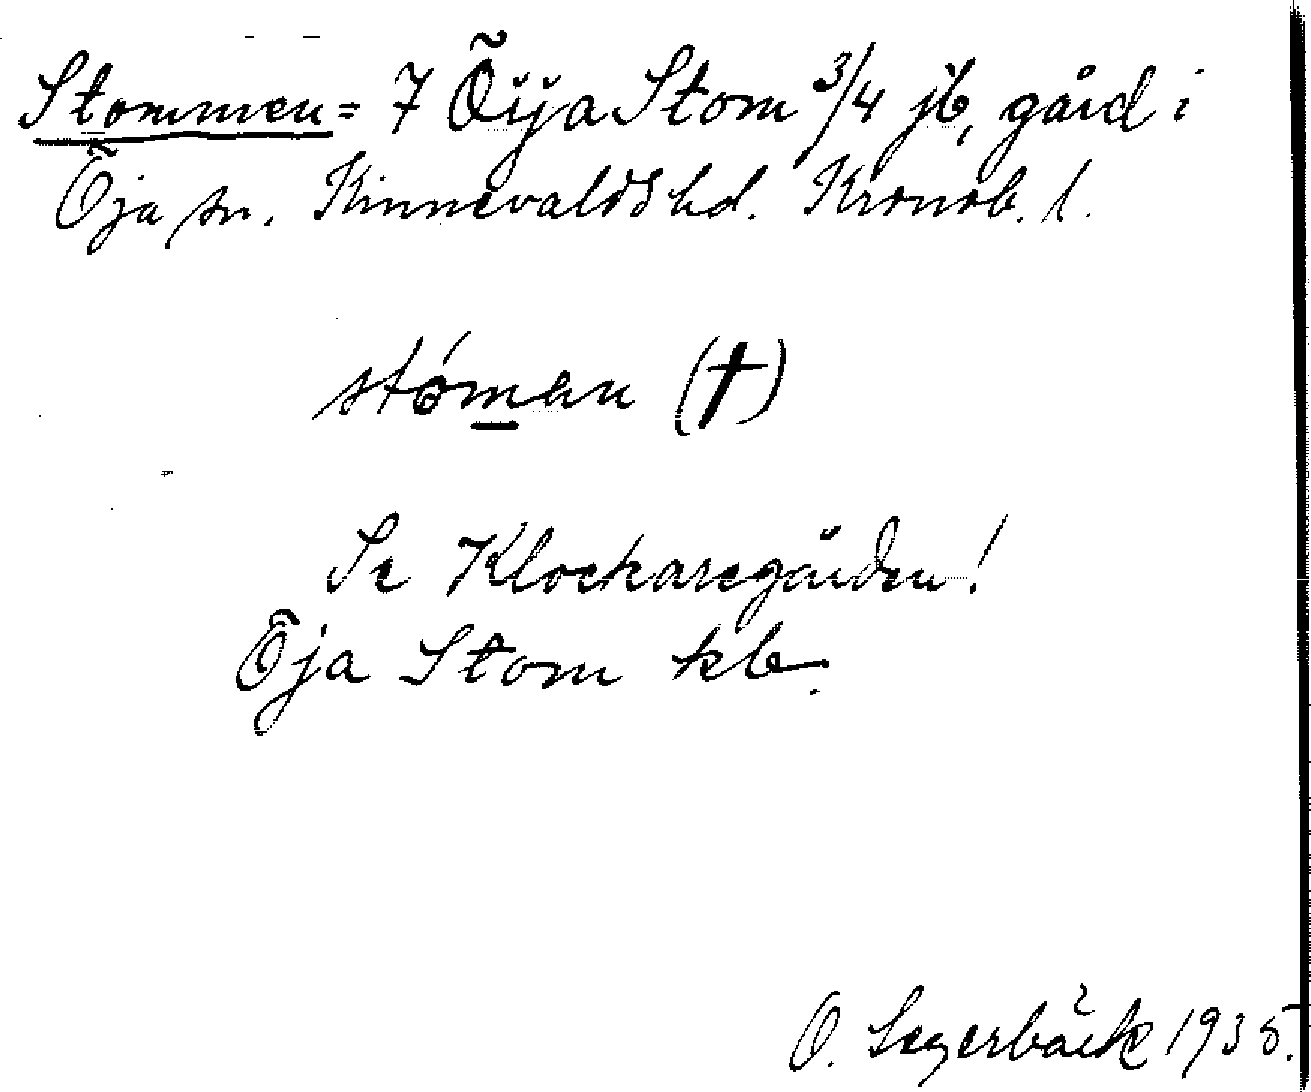 Stommen = 7 Öija Stom 3/4 jb, gård i
Öja sn. Kinnevalds hd. Kronob. l.
stóman (†)
Se Klockaregården!
Öja Stom kb.
O. Segerbäck 1935.